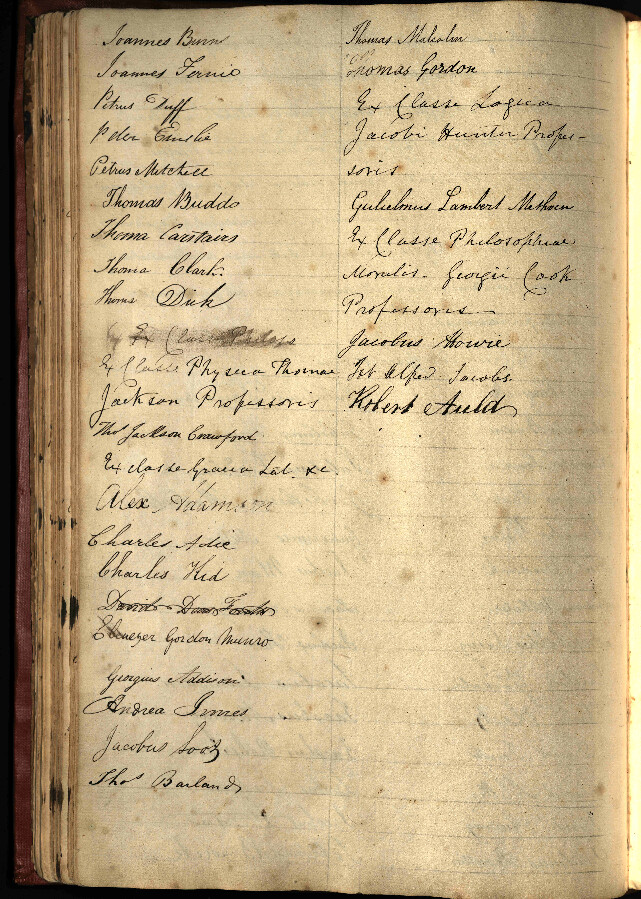 Joannes Burns
Joannes Fernie
Petrus Duff
Peter Emslie
Petrus Mitchell
Thomas Buddo
Thoma Carstairs
Thoma Clark
Thoma Dick
Ex Classe
Ex Classe Physica Thomae
Jackson Professoris
Thos Jackson Crawford
Ex classe Graeca Lat. &c.
Alex Adamson
Charles Adie
Charles Kid
David
Ebenezer Gordon Munro
Georgius Addison
Andrea Innes
Jacobus
Thos Barland
Thomas Malcolm
Thomas Gordon
Ex Classe Logica
Jacobi Hunter Profes-
soris
Gulielmus Lambert Methven
Ex Classe Philosophiae
Moralis Georgii Cook
Professoris
Jacobus Howie
Robert Auld